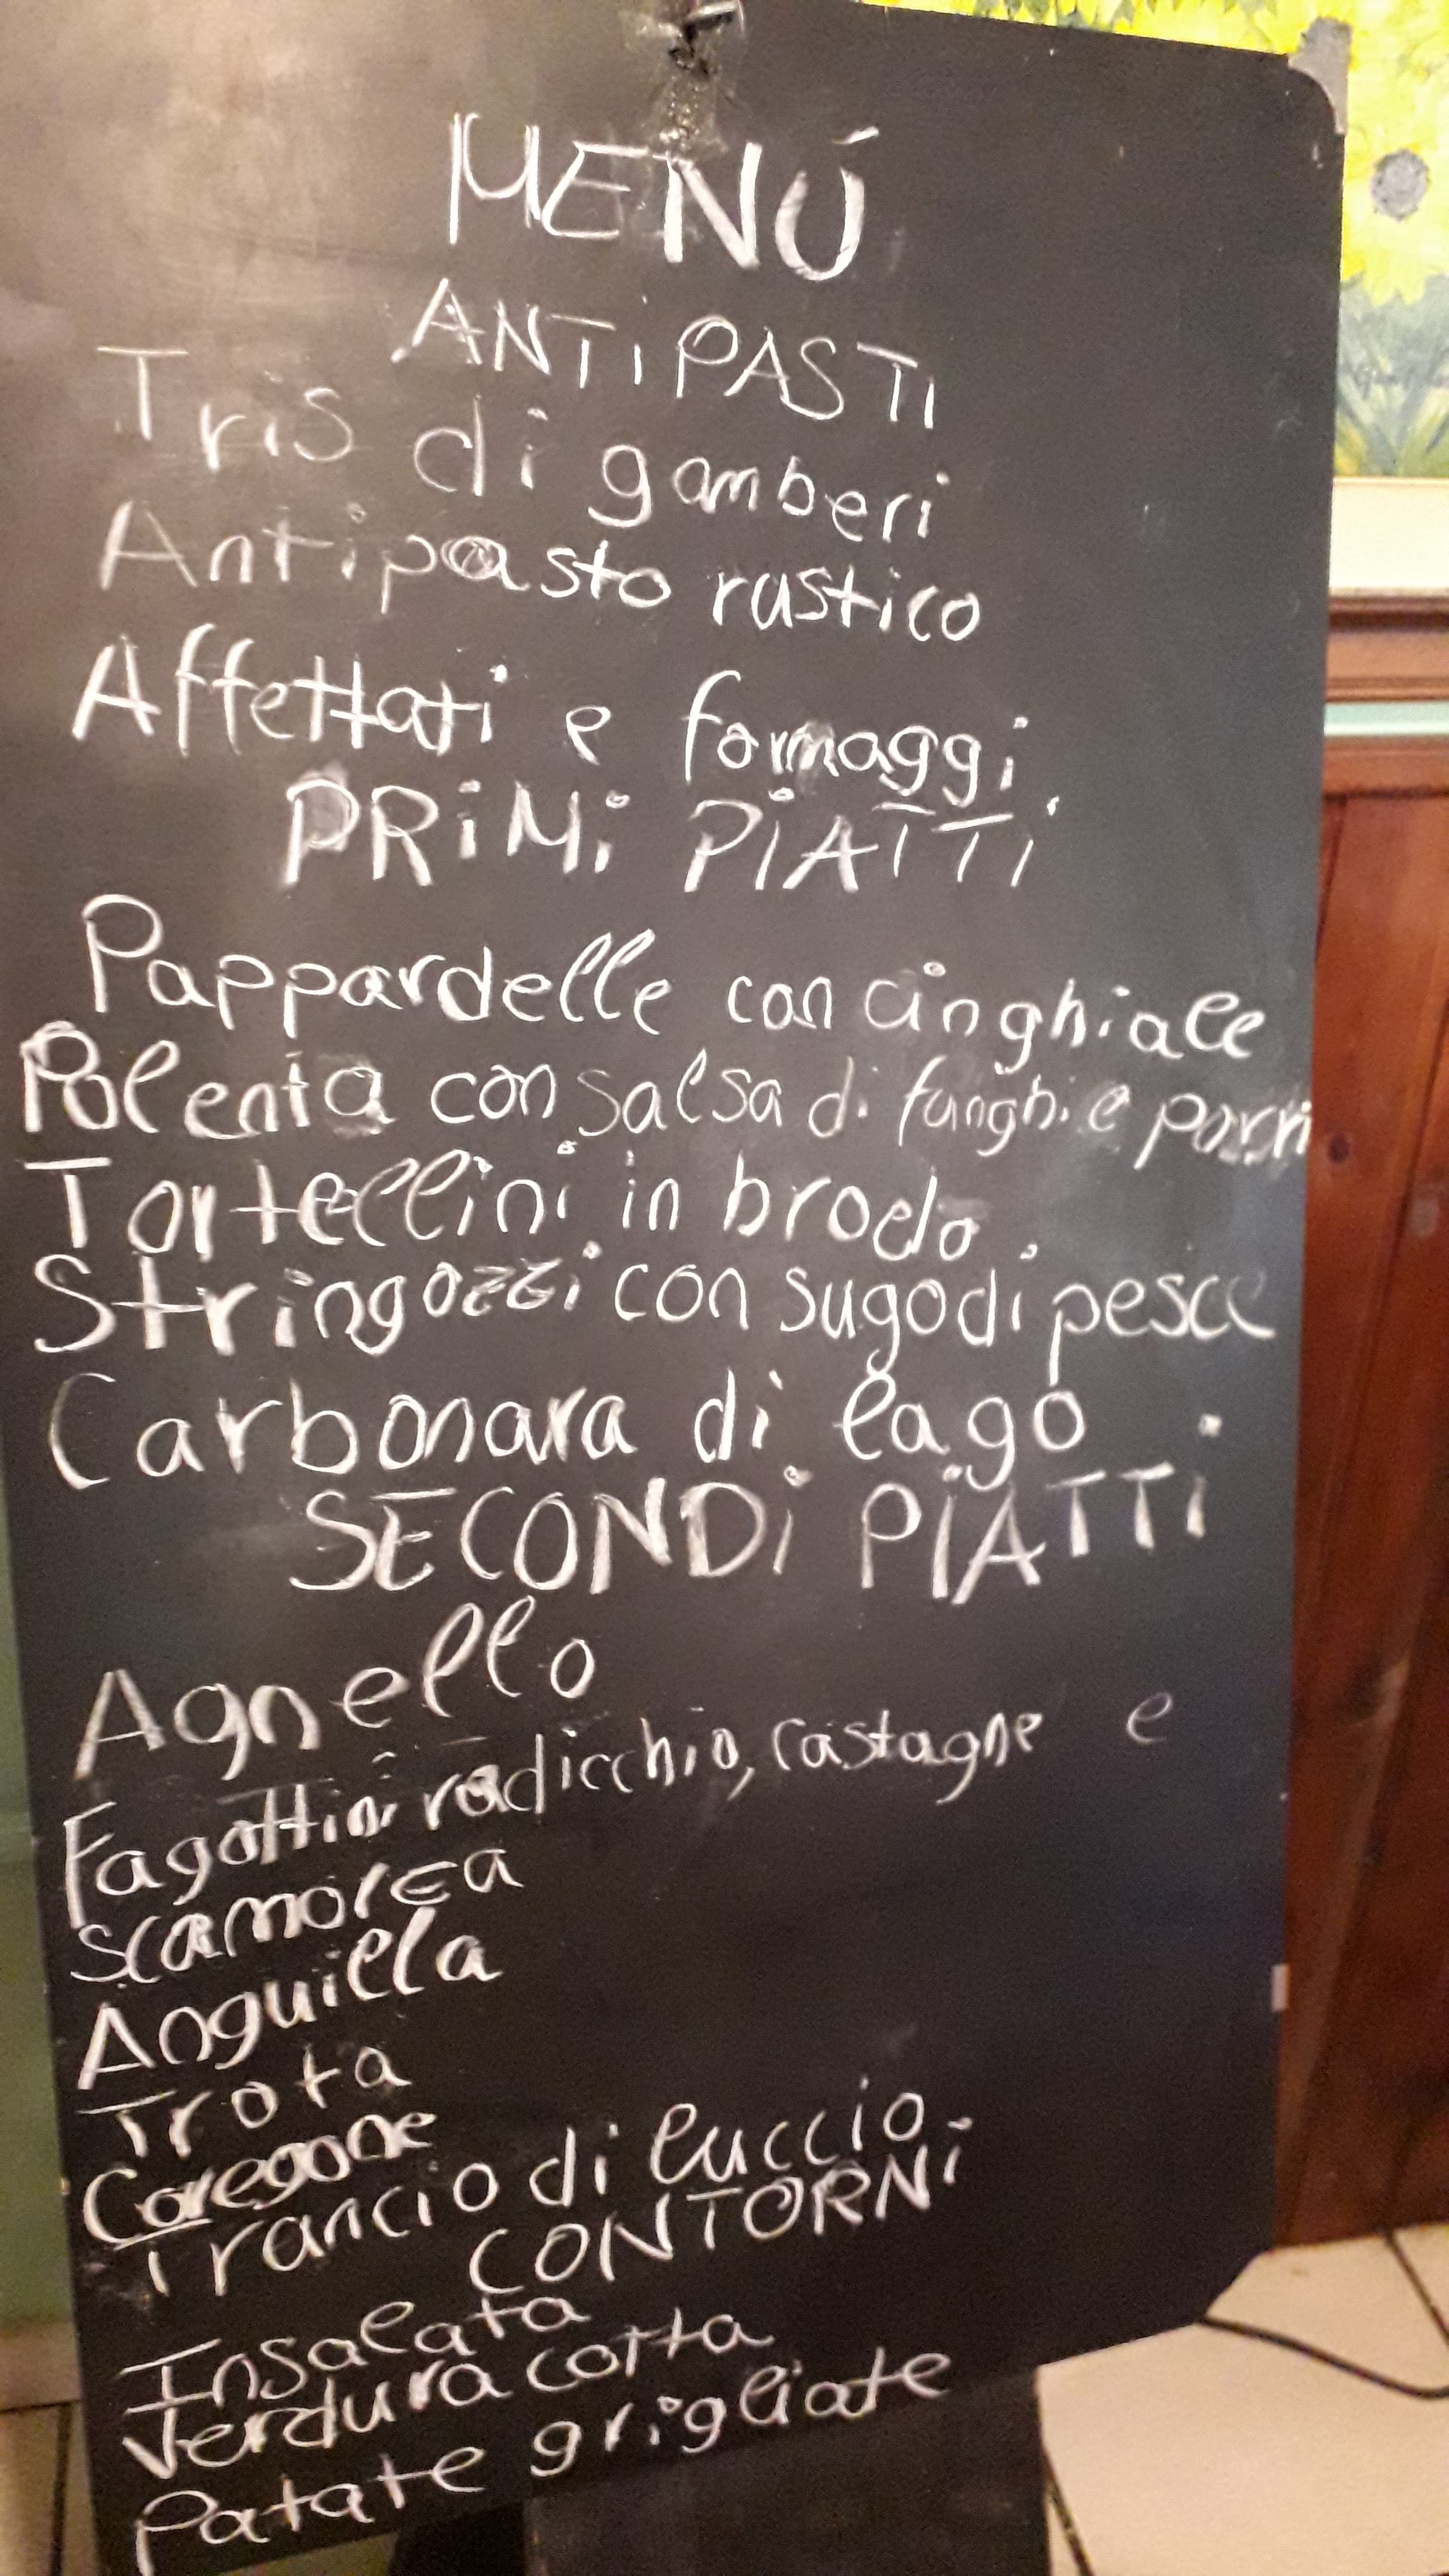 MENÚ
ANTiPASTi
Tris di gamberi
Antipasto rustico
Affettati e formaggi
PRiMi PiATTi
Pappardelle con cinghiale
Polenta con salsa di funghi e porri
Tortellini in brodo
Stringozzi con sugo di pesce
Carbonara di lago
SECONDi PiATTi
Agnello
Fagottini radicchio, castagne e
scamorza
Anguilla
Trota
Coregone
Trancio di luccio
CONTORNi
Insalata
Verdura cotta
Patate grigliate